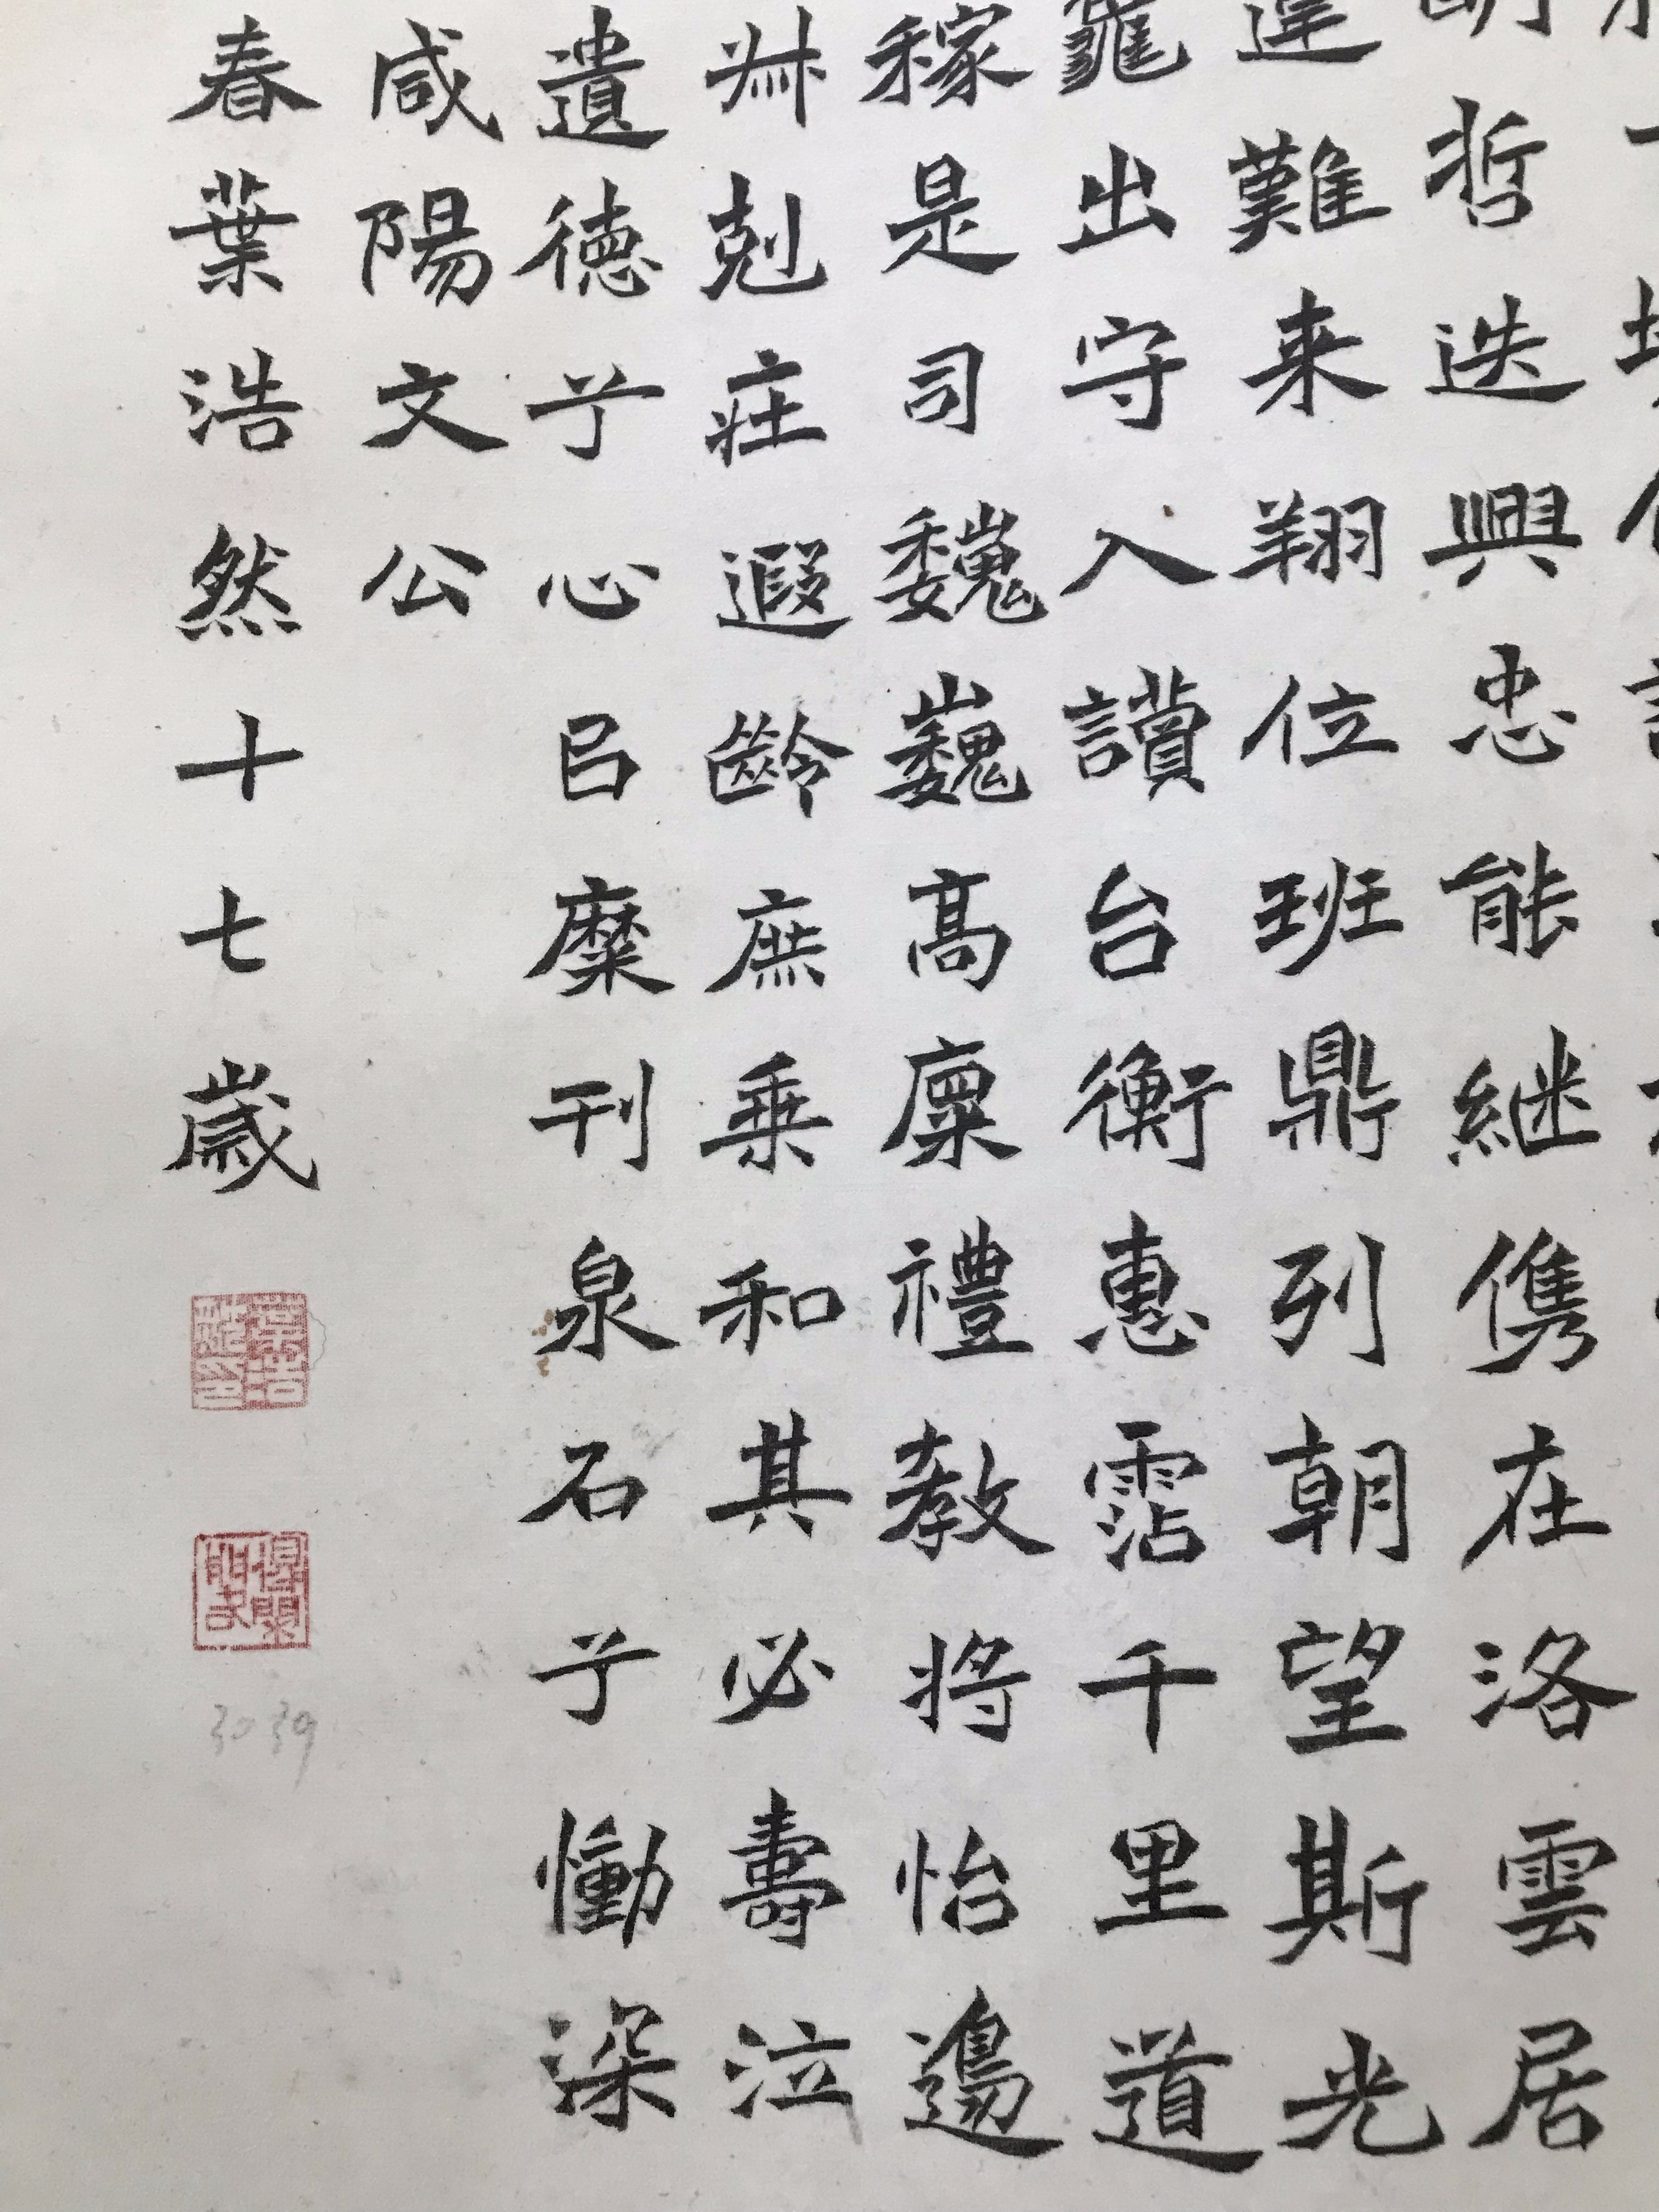 哲迭興忠能継儁在洛雲居
難来翔位班鼎列朝望斯光
出守入讃台衡惠霑千里道
稼是司魏巍高廩禮教将怡邊
剋庄遐齡庶乗和其必壽泣
遺德兮心㠯縻刊泉石兮慟深
咸陽文公
春葉浩然十七歳
3039